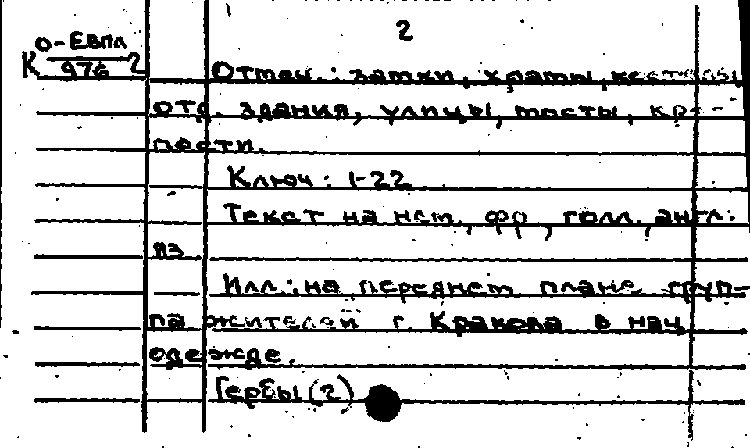 2
К О-Евпл 976 2
Отмеч.: замки, храмы, костелы
отд. здания, улицы, мосты, кре-
пости.
Ключ: 1-22
Текст на нем., фр, голл., англ.
яз
Илл.: на переднем плане груп-
па жителей г. Кракова в нац.
одежде.
Гербы (2)